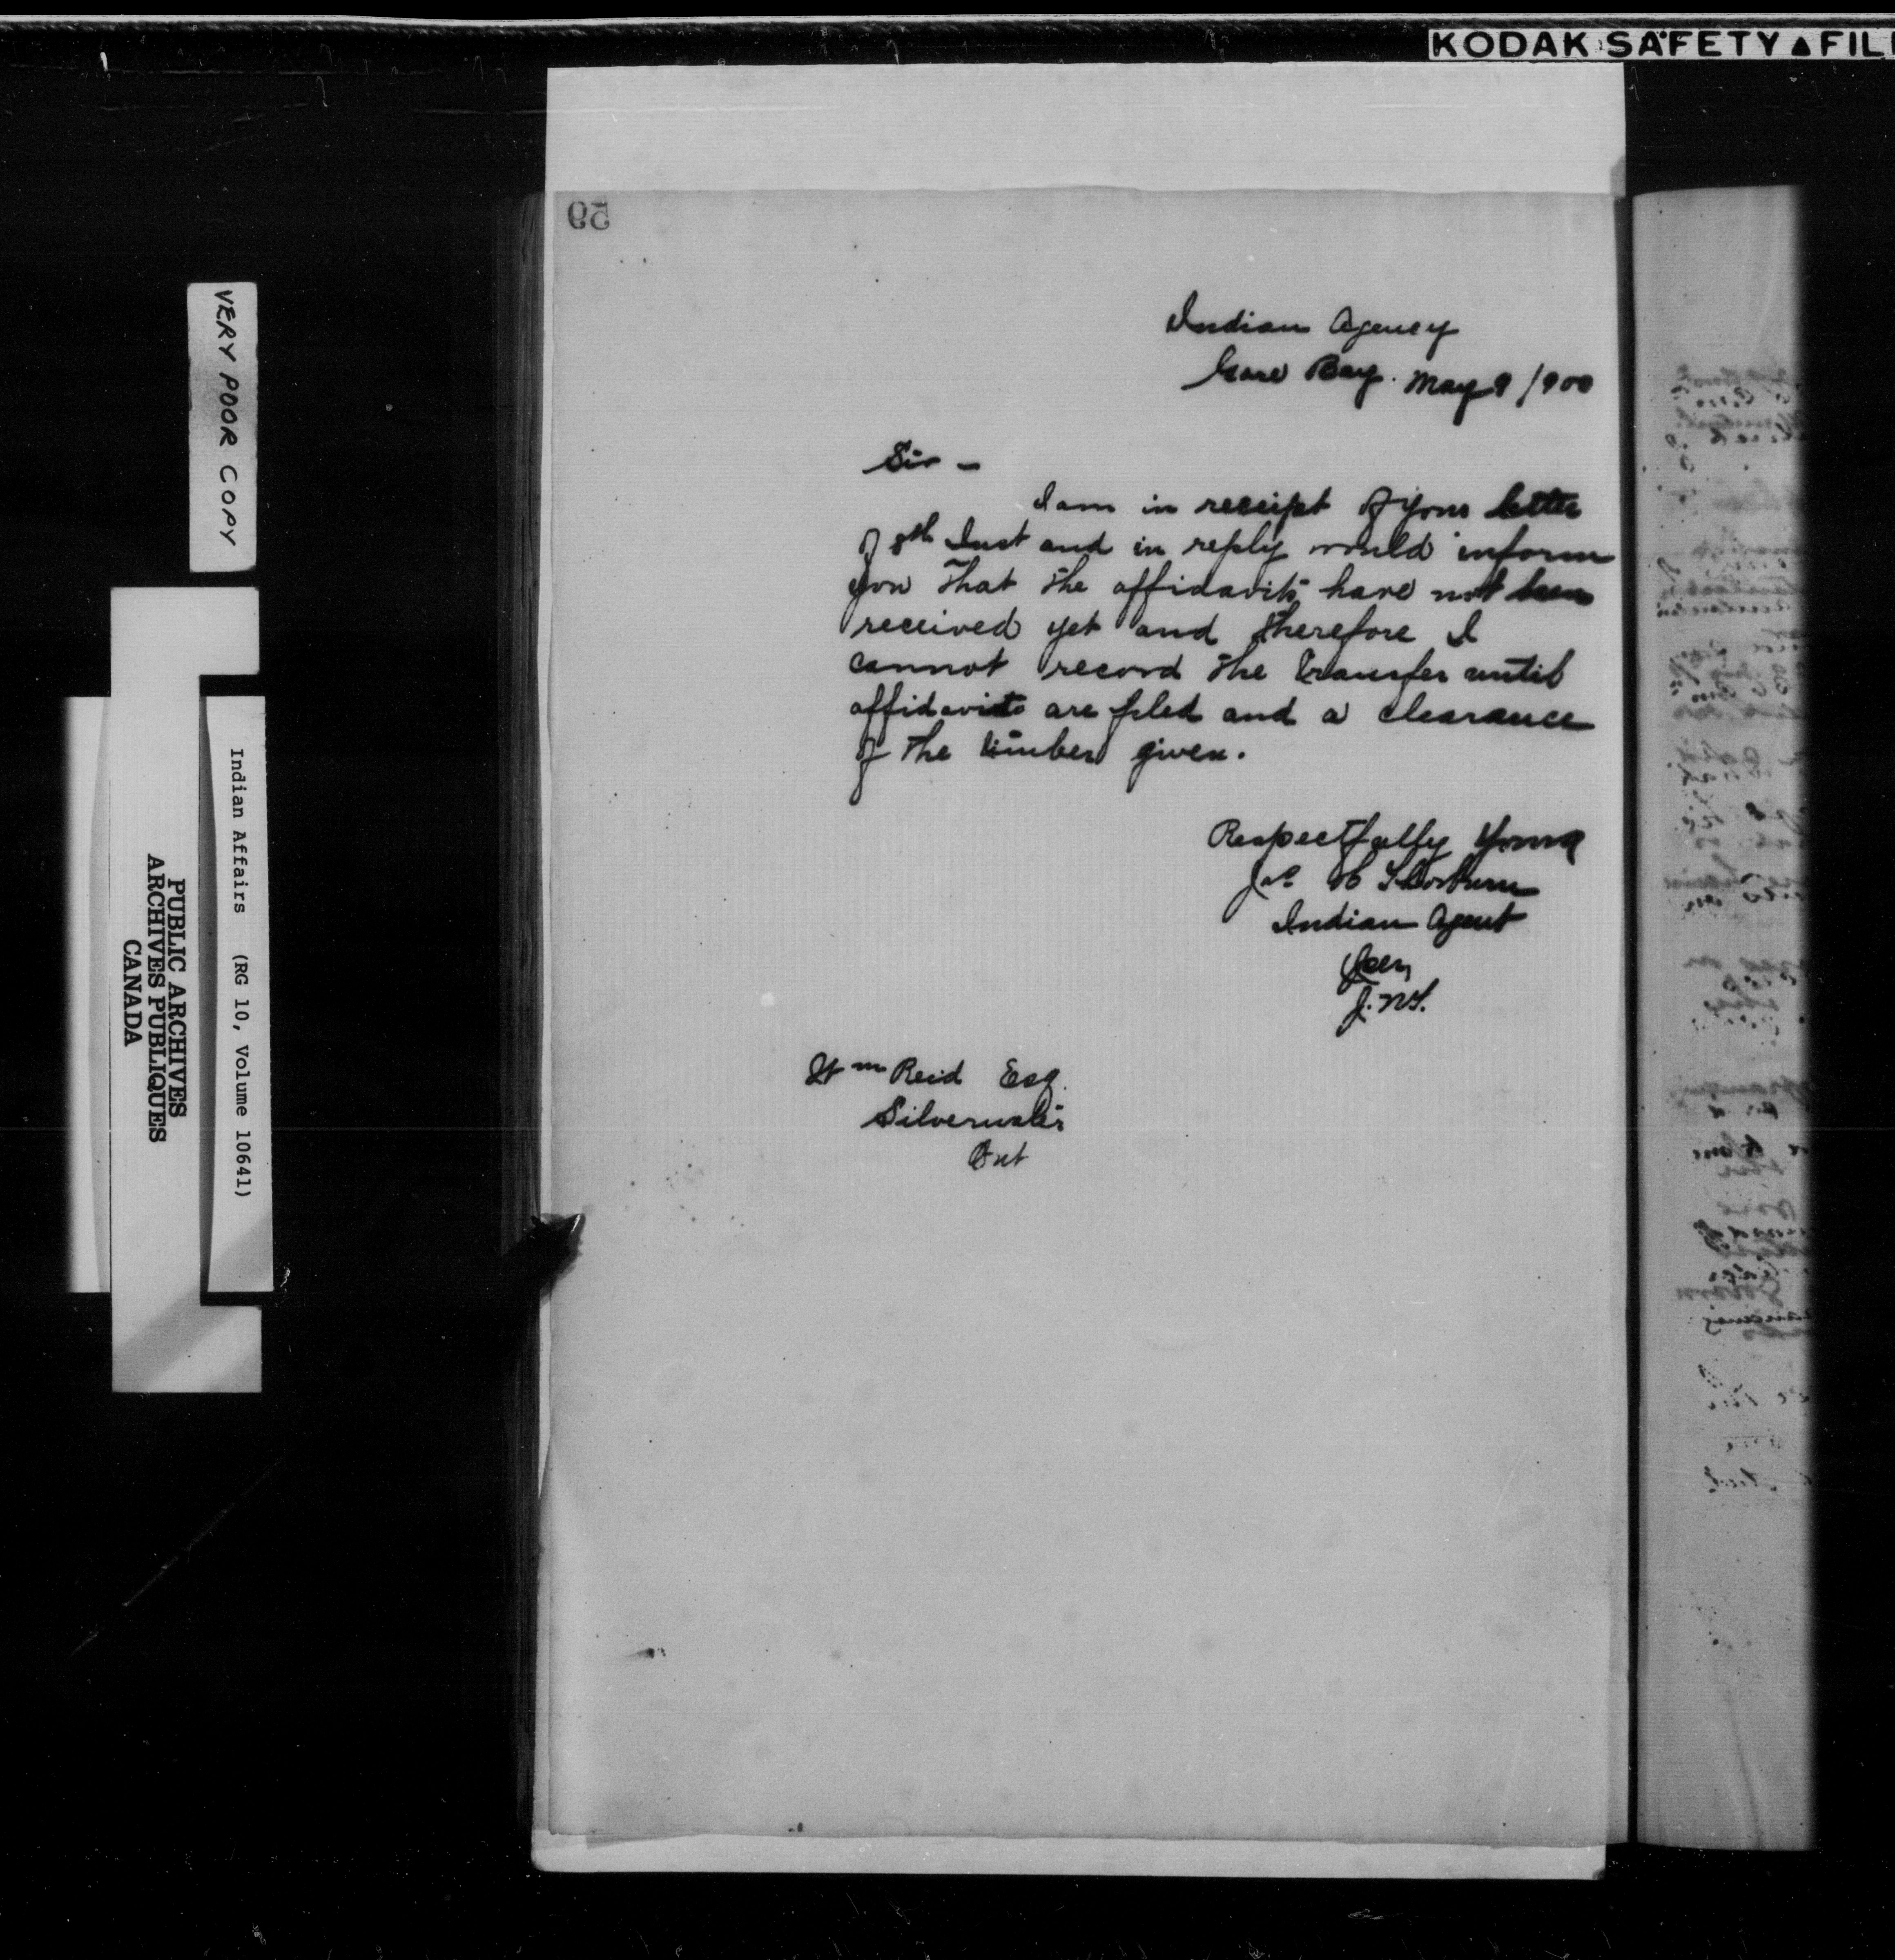 KODAK SAFETY ▲ FIL
59
Indian Agency
Gore Bay. May 9 /900
Sir –
I am in receipt of your letter
of 8th Inst and in reply would inform
you that the affidavits have not been
received yet and therefore I
cannot record the transfer until
affidavits are filed and a clearance
of the timber given.
Respectfully Yours
Jno H Thorburn
Indian Agent
Per
J.N.T.
Wm Reid Esq.
Silverwater
Ont
VERY POOR COPY
Indian Affairs (RG 10, Volume 10641)
PUBLIC ARCHIVES
ARCHIVES PUBLIQUES
CANADA